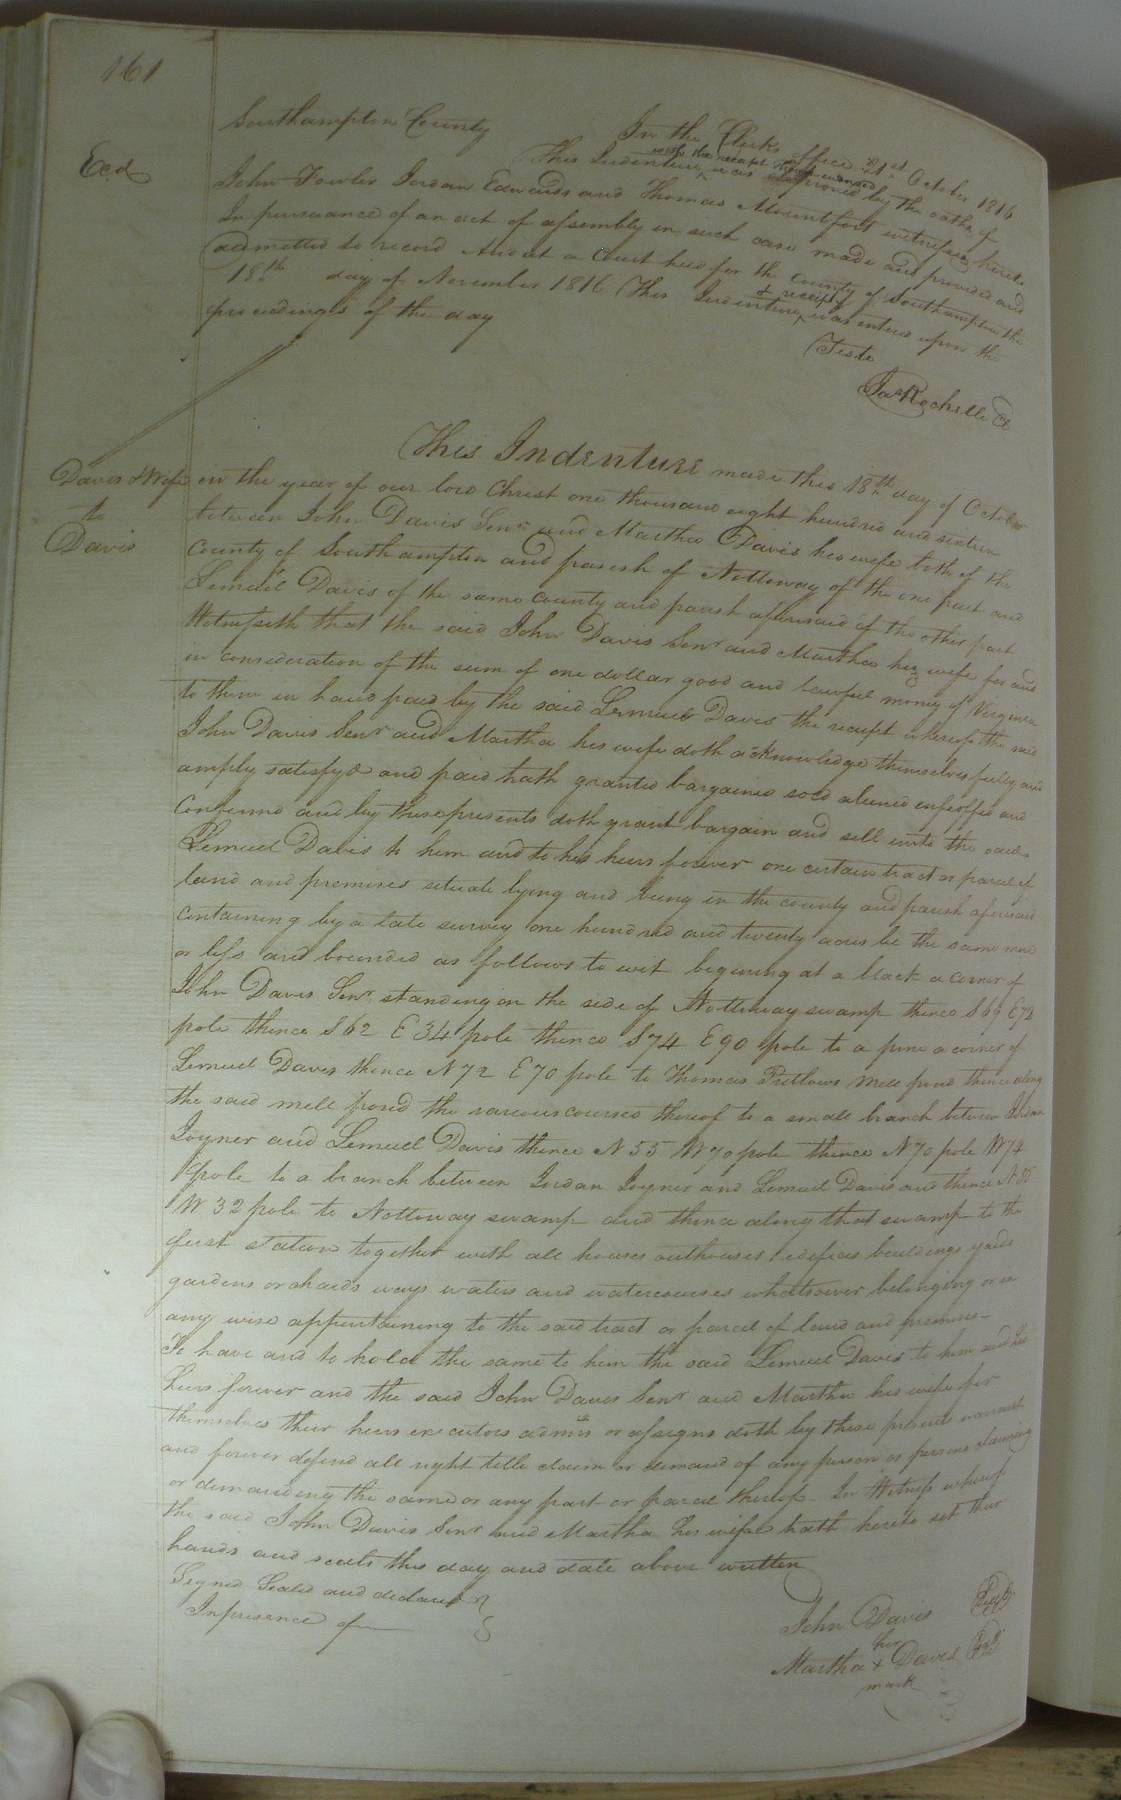 161
Southampton County In the Clerks office 21st October 1816
Exd
This Indenture with the receipt thereon endorsed was proved by the oaths of
John Fowler Jordan Edwards and Thomas Mountfort witnesses hereto
In pursuance of an act of assembly in such case made and provided and
admitted to record And at a Court held for the County of Southampton the
18th day of November 1816 This Indenture & receipt was entered upon the
proceedings of the day
Teste
Jas Rochelle Cl
This Indenture made this 18th day of October
Davis & Wife
to
Davis
in the year of our lord Christ one thousand eight hundred and sixteen
between John Davis Senr and Martha Davis his wife both of the
County of Southampton and parish of Nottoway of the one part and
Lemuel Davis of the same County and parish aforesaid of the other part
Witnesseth that the said John Davis Senr and Martha his wife for and
in consideration of the sum of one dollar good and lawful money of Virginia
to them in hand paid by the said Lemuel Davis the receipt whereof the said
John Davis Senr and Martha his wife doth acknowledge themselves fully and
amply satisfyd and paid hath granted bargained sold aliened enfeoffed and
Confirmed and by these presents doth grant bargain and sell unto the said
Lemuel Davis to him and to his heirs forever one certain tract or parcel of
land and premises situate lying and being in the county and parish aforesaid
containing by a late survey one hundred and twenty acres be the same more
or less and bounded as follows to wit begining at a black a corner of
John Davis Senr standing on the side of Nottoway swamp thence S 69 E 73
pole thence S 62 E 34 pole thence S 74 E 90 pole to a pine a corner of
Lemuel Davis thence N 72 E 70 pole to Thomas Pretlows mill pond thence along
the said mill pond the various courses thereof to a small branch between Jordan
Joyner and Lemuel Davis thence N 55 W 70 pole thence N 70 pole W 74
pole to a branch between Jordan Joyner and Lemuel Davis and thence N 35
W 32 pole to Nottoway swamp and thence along that swamp to the
first station together with all houses outhouses edifices buildings yards
gardens orchards ways waters and watercourses whatsoever belonging or in
any wise appurtaining to the said tract or parcel of land and premises
To have and to hold the same to him the said Lemuel Davis to him and his
heirs forever and the said John Davis Senr and Martha his wife for
themselves their heirs executors admrs or assigns doth by these presents warrant
and forever defend all right title claim or demand of any person or persons claiming
or demanding the same or any part or parcel thereof In Witness whereof
the said John Davis Senr and Martha his wife hath hereto set their
hands and seals this day and date above written
Signed Sealed and declared
In presence of
John Davis Seal
her
Martha + Davis Seal
mark